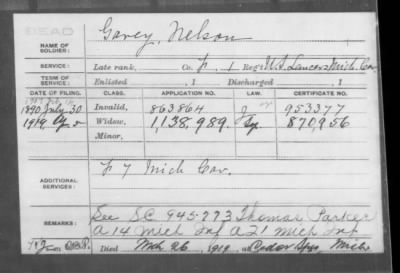 DEAD
NAME OF SOLDIER: Gorey, Nelson
SERVICE: Late rank, Co. F, 1 Reg't U.S. Lancers Mich Cav
TERM OF SERVICE: Enlisted , 1 Discharged , 1
DATE OF FILING. CLASS. APPLICATION NO. LAW. CERTIFICATE NO.
1890 July 30 Invalid, 863864 J 953377
1919 Ap 5 Widow, 1,138,989. 870956
Minor,
ADDITIONAL SERVICES: F 7 Mich Cav.
REMARKS: See SC 945-773 Thomas Parker
a 14 Mich Inf a 21 Mich Inf
Died Mch 26, 1919, at Cedar Spgs Mich